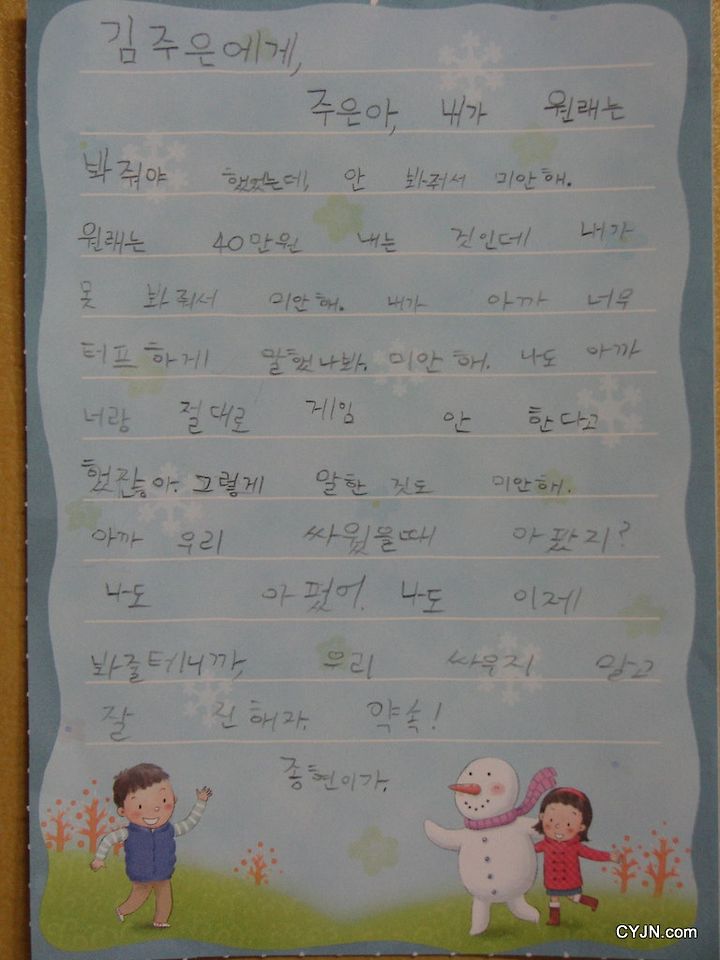 김주은에게,
주은아, 내가 원래는
봐줘야 했었는데, 안 봐줘서 미안해.
원래는 40만원 내는 것인데 내가
못 봐줘서 미안해. 내가 아까 너무
터프하게 말했나봐. 미안해. 나도 아까
너랑 절대로 게임 안 한다고
했잖아. 그렇게 말한 것도 미안해.
아까 우리 싸웠을때 아팠지?
나도 아펐어. 나도 이제
봐줄테니까, 우리 싸우지 말고
잘 친해자. 약속!
종현이가.
CYJN.com